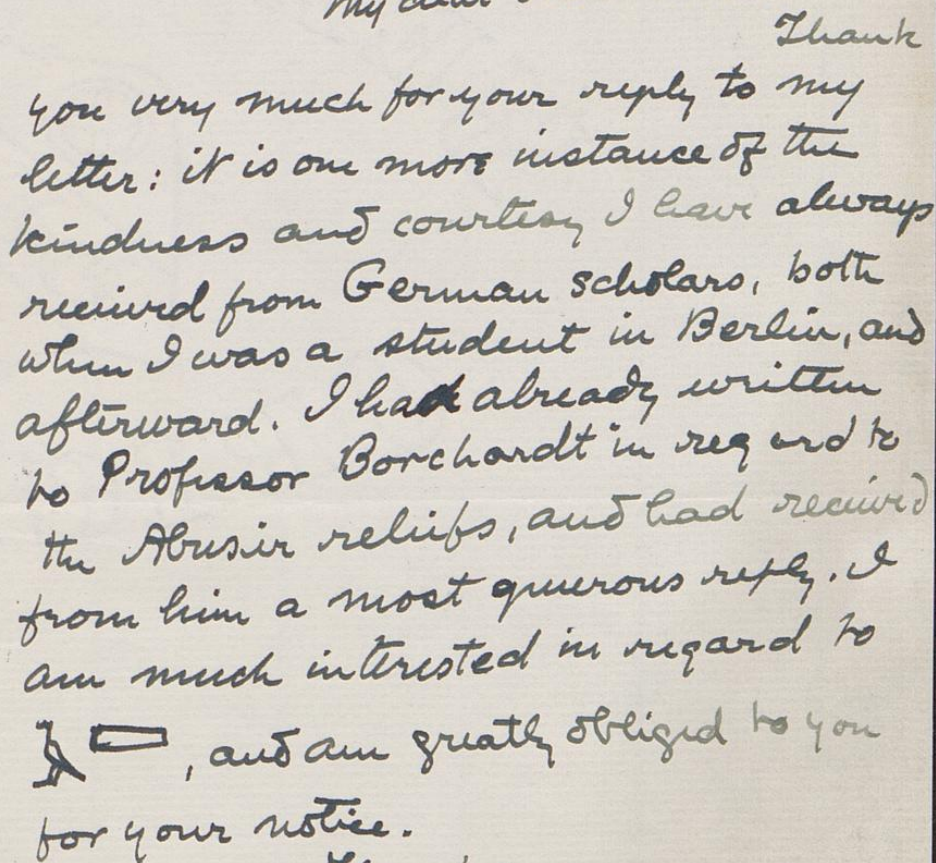 My dear
Thank
you very much for your reply to my
letter: it is one more instance of the
kindness and courtesy I have always
received from German scholars, both
when I was a student in Berlin, and
afterward. I had already written
to Professor Borchardt in regard to
the Abusir reliefs, and had received
from him a most generous reply. I
am much interested in regard to
, and am greatly obliged to you
for your notice.